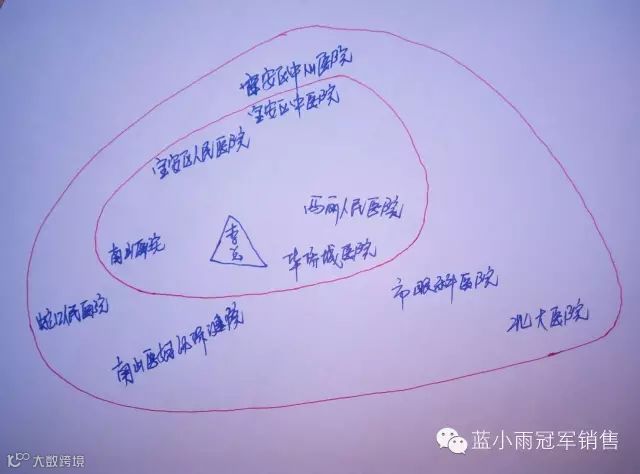 宝安区中心医院
宝安区中医院
宝安区人民医院
西丽人民医院
南山医院
华侨城医院
市眼科医院
蛇口人民医院
北大医院
蓝小雨冠军销售
大数跨境